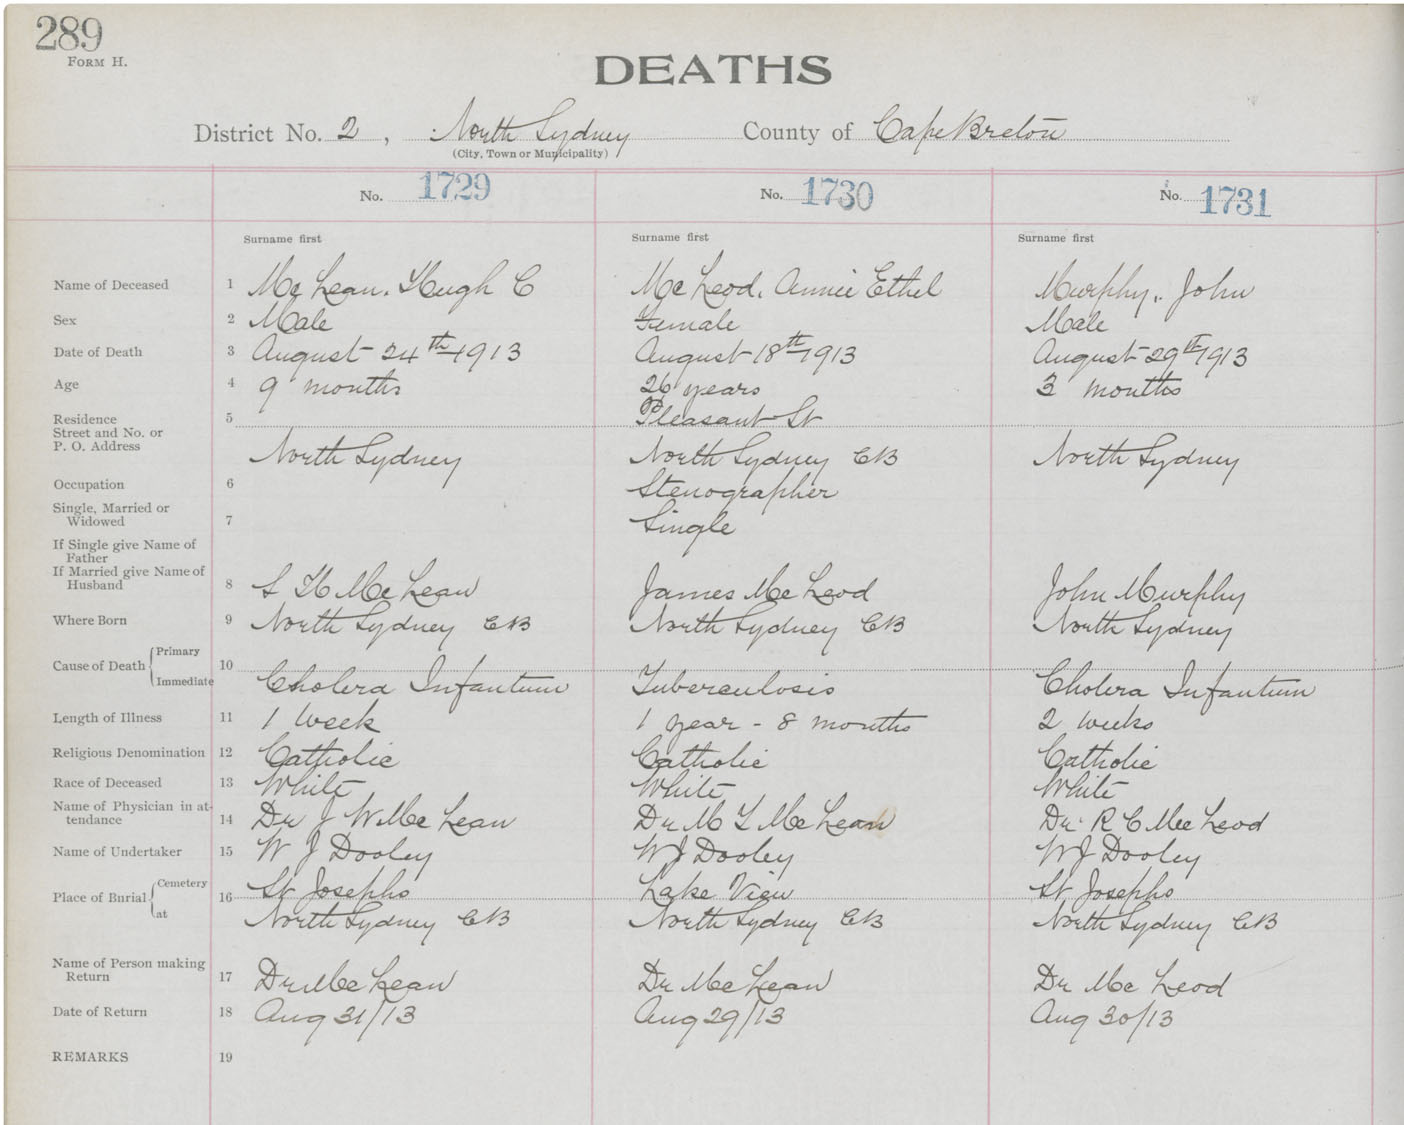 289
FORM H.
DEATHS
District No. 2, North Sydney County of Cape Breton
(City, Town or Municipality)
No. 1729 No. 1730 No. 1731
Surname first Surname first Surname first
Name of Deceased 1 McLean. Hugh C McLeod. Annie Ethel Murphy. John
Sex 2 Male Female Male
Date of Death 3 August 24th 1913 August 18th 1913 August 29th 1913
Age 4 9 months 26 years 3 months
Residence 5 Pleasant St
Street and No. or
P. O. Address North Sydney North Sydney CB North Sydney
Occupation 6 Stenographer
Single, Married or
Widowed 7 Single
If Single give Name of
Father
If Married give Name of
Husband 8 S H McLean James McLeod John Murphy
Where Born 9 North Sydney CB North Sydney CB North Sydney
Primary
Cause of Death 10
Immediate Cholera Infantum Tuberculosis Cholera Infantum
Length of Illness 11 1 Week 1 year - 8 months 2 weeks
Religious Denomination 12 Catholic Catholic Catholic
Race of Deceased 13 White White White
Name of Physician in at-
tendance 14 Dr J W McLean Dr M T McLean Dr. R C McLeod
Name of Undertaker 15 W J Dooley W J Dooley W J Dooley
Cemetery St Josephs Lake View St Josephs
Place of Burial 16
at North Sydney CB North Sydney CB North Sydney CB
Name of Person making
Return 17 Dr McLean Dr McLean Dr McLeod
Date of Return 18 Aug 31/13 Aug 29/13 Aug 30/13
REMARKS 19